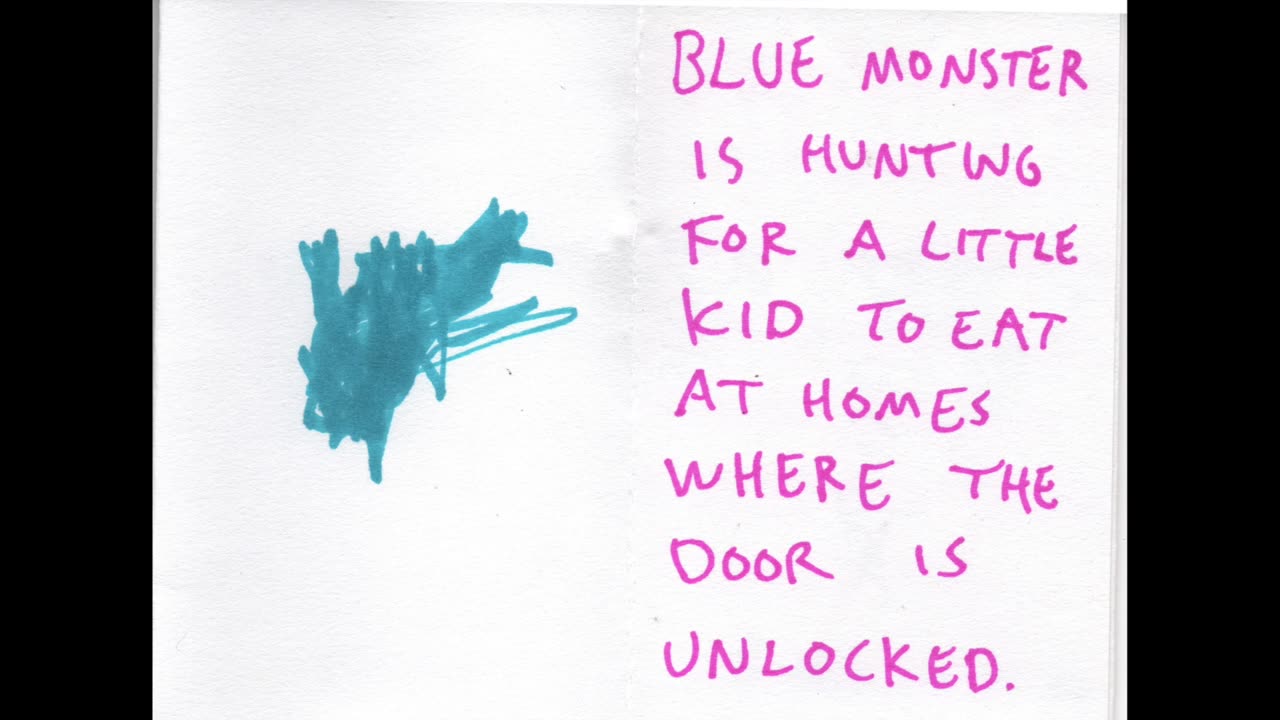 BLUE MONSTER
IS HUNTING
FOR A LITTLE
KID TO EAT
AT HOMES
WHERE THE
DOOR IS
UNLOCKED.